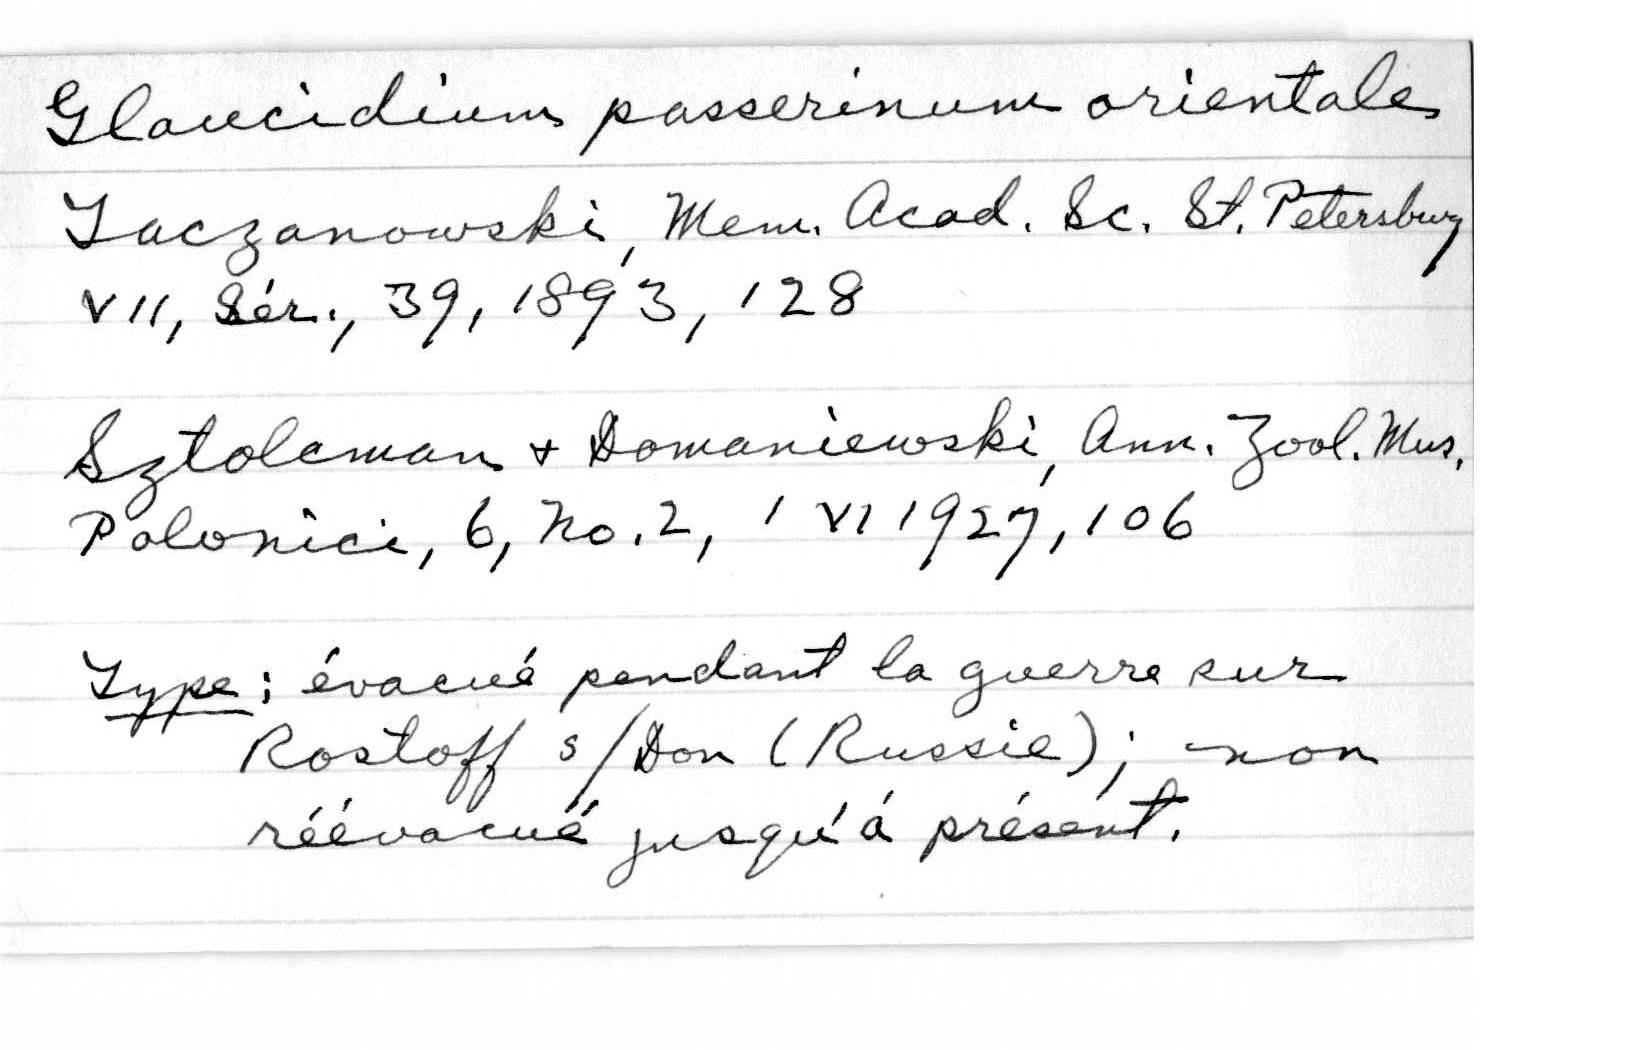 Glaucidium passerinum orientale
Taczanowski, Mem. Acad. Sc. St. Petersburg
VII, Sér., 39, 1893, 128
Sztolcman + Domaniewski, Ann. Zool. Mus.
Polonici, 6, No. 2, 1 VI 1927, 106
Type: évacué pendant la guerre sur
Rostoff s/Don (Russie); non
réévacué jusqu'á présent.